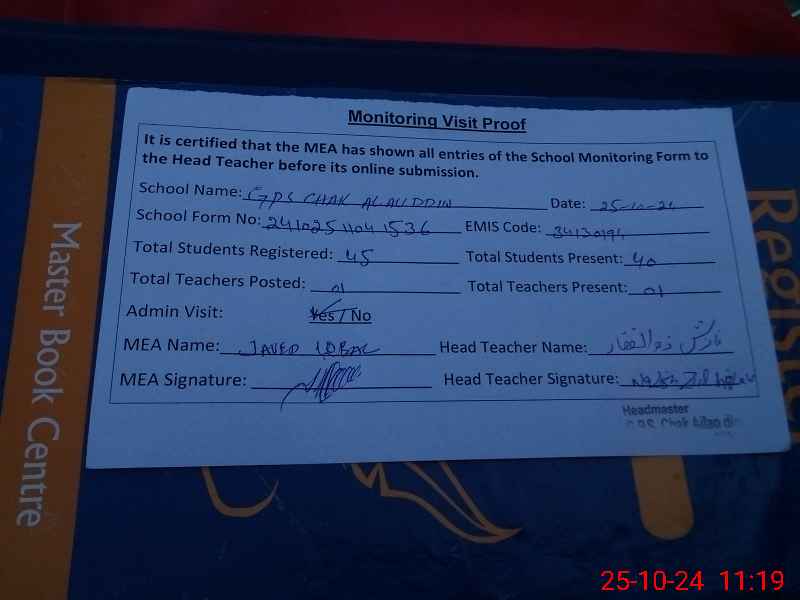 Monitoring Visit Proof
It is certified that the MEA has shown all entries of the School Monitoring Form to
the Head Teacher before its online submission.
School Name: GPS CHAK ALAUDDIN Date: 25-10-24
School Form No: 24102511041536 EMIS Code: 34130194
Total Students Registered: 45 Total Students Present: 40
Total Teachers Posted: 01 Total Teachers Present: 01
Admin Visit: Yes / No
MEA Name: JAVED IQBAL Head Teacher Name: ذوالفقار
MEA Signature: Head Teacher Signature:
Headmaster
G.P.S. Chak
Master Book Centre
Register
25-10-24 11:19